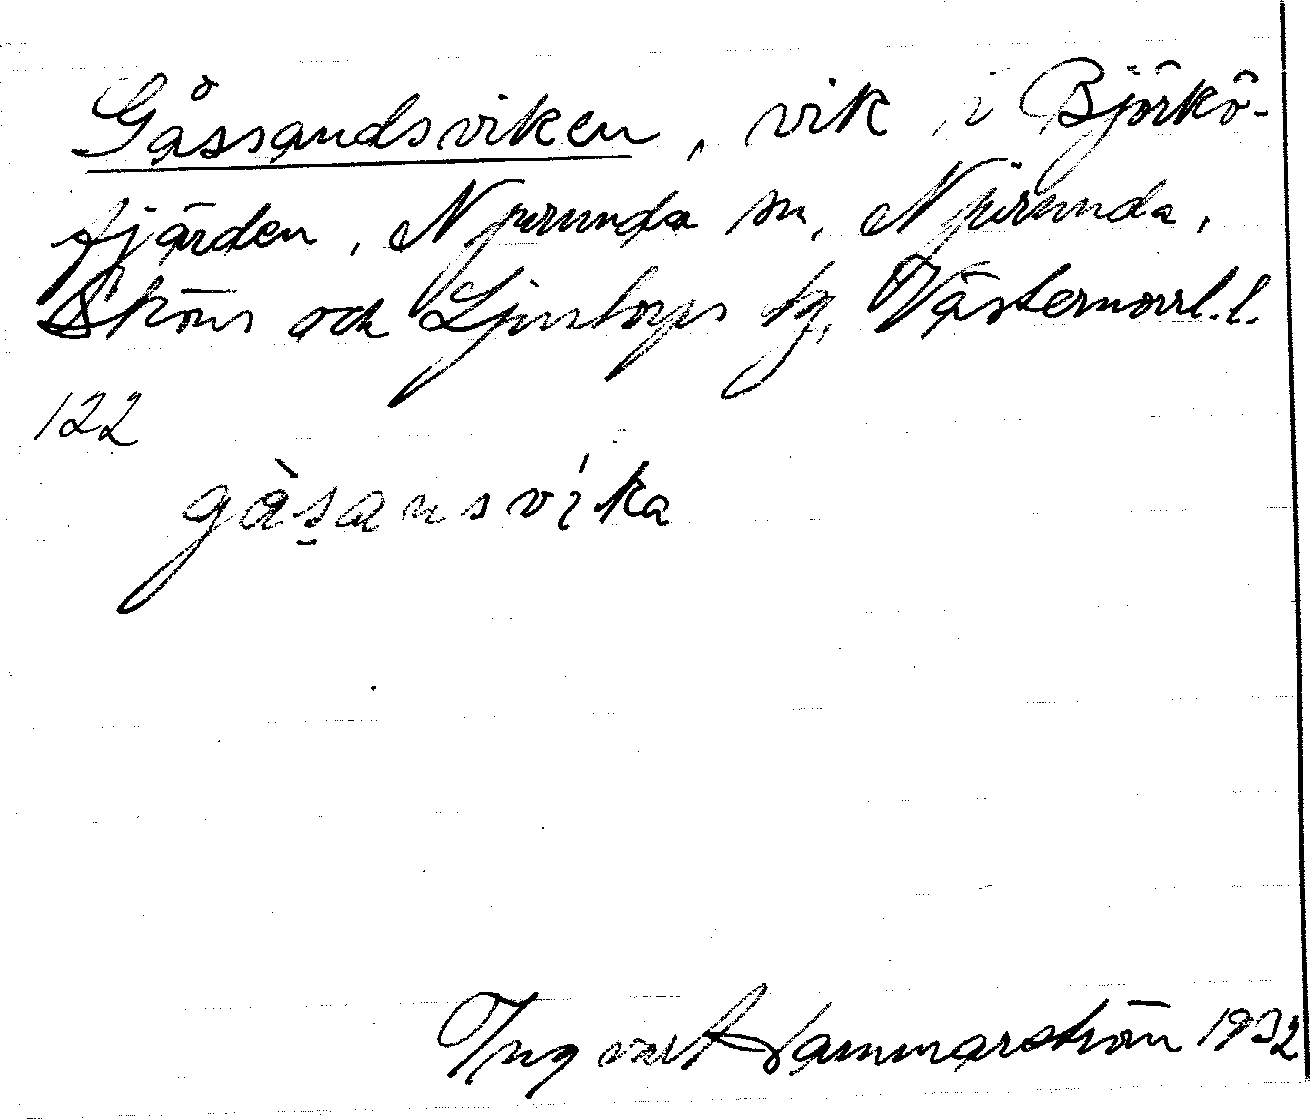 Gåssandsviken, vik i Björkö-
fjärden, Njurunda sn, Njurunda,
Sköns och Ljustorps tg, Västernorrl.l.
122
gàs̮ansvíka
Ingvart Hammarström 1932